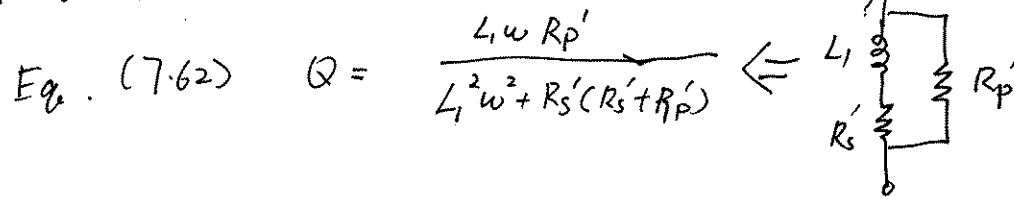 Eq. (7.62) Q = L₁ω Rp' / (L₁²ω² + Rs'(Rs'+Rp')) ⇐ L₁ Rp'
Rs'